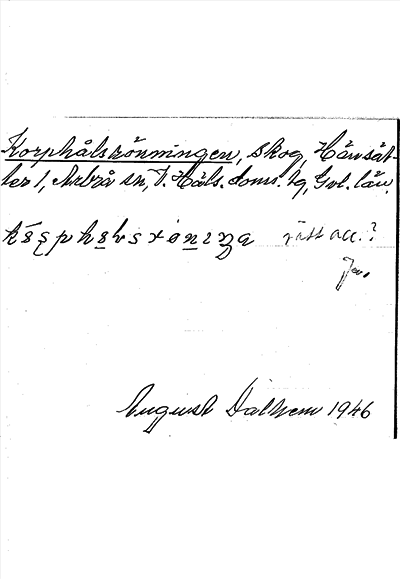 Korphålsrönningen, skog, Hänsät-
ter 1, Arbrå sn, V. Häls. doms. tg, Gvl. län.
rätt acc.?
Ja.
August Dalhem 1946